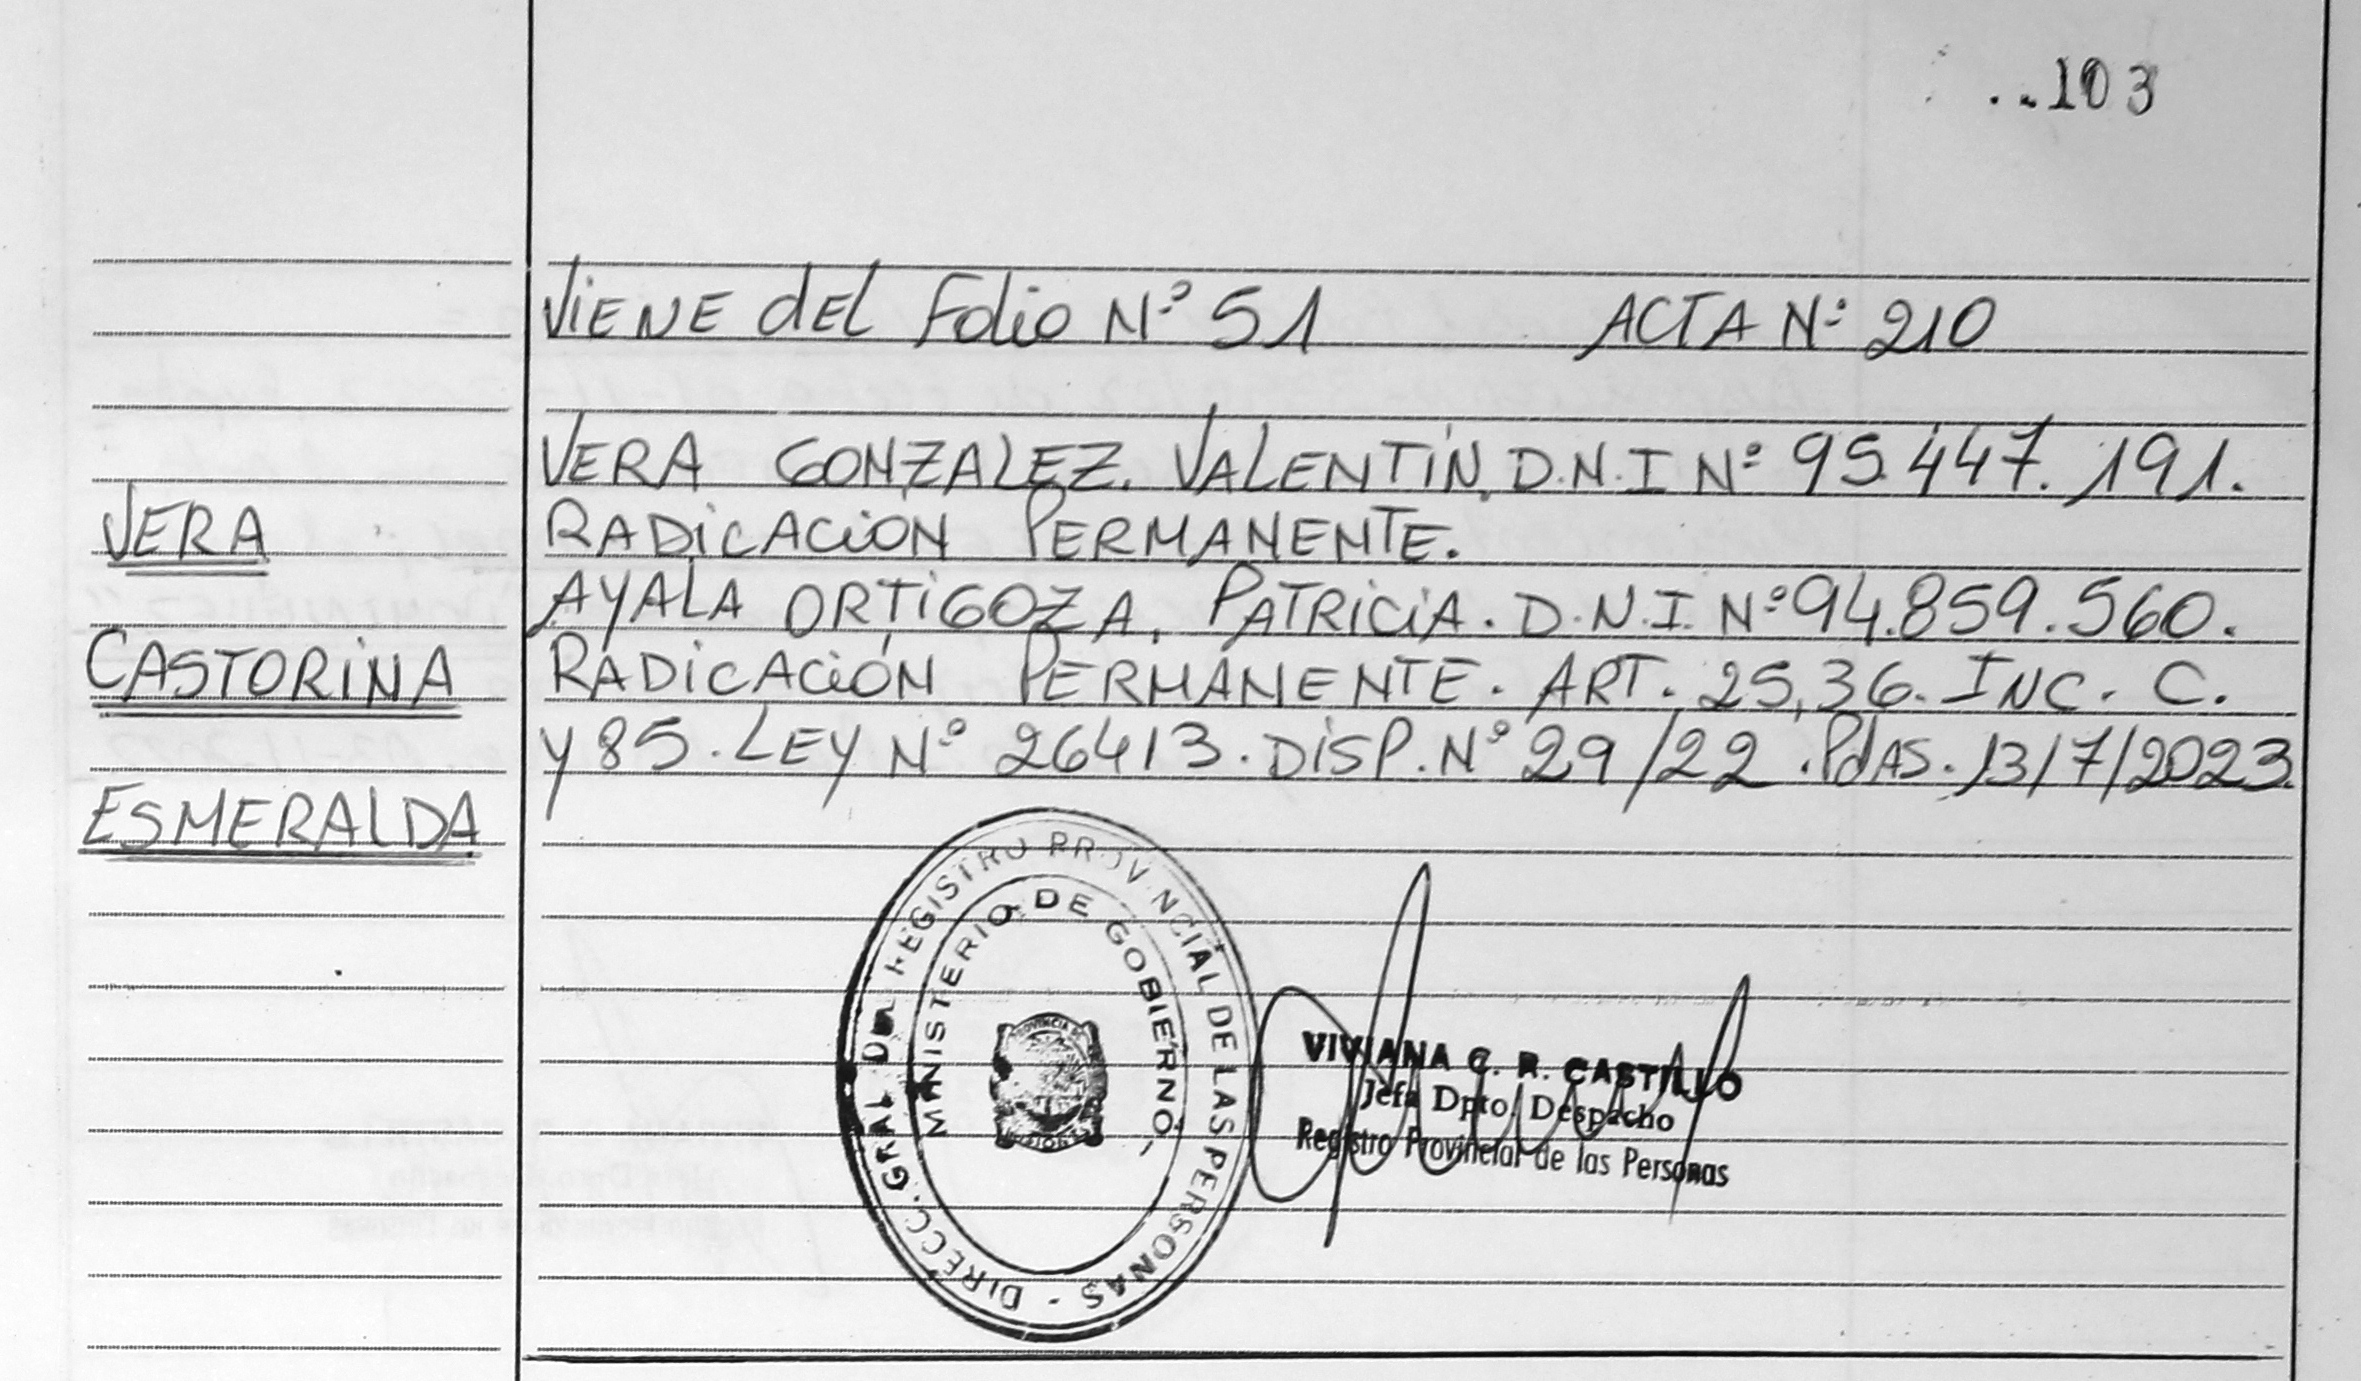 ..103
Viene del Folio Nº 51 ACTA Nº 210
VERA GONZALEZ. VALENTÍN. D.N.I Nº 95.447.191.
VERA
RADICACIÓN PERMANENTE.
AYALA ORTIGOZA, PATRICIA. D.N.I. Nº 94.859.560.
CASTORINA
RADICACIÓN PERMANENTE. ART. 25,36. INC. C.
Y 85. LEY Nº 26413. DISP. Nº 29/22. PdAS. 13/7/2023.
ESMERALDA
DIRECC. GRAL DEL REGISTRO PROVINCIAL DE LAS PERSONAS -
MINISTERIO DE GOBIERNO -
PROVINCIA DE
MISIONES
VIVIANA C. R. CASTILLO
Jefa Dpto. Despacho
Registro Provincial de las Personas